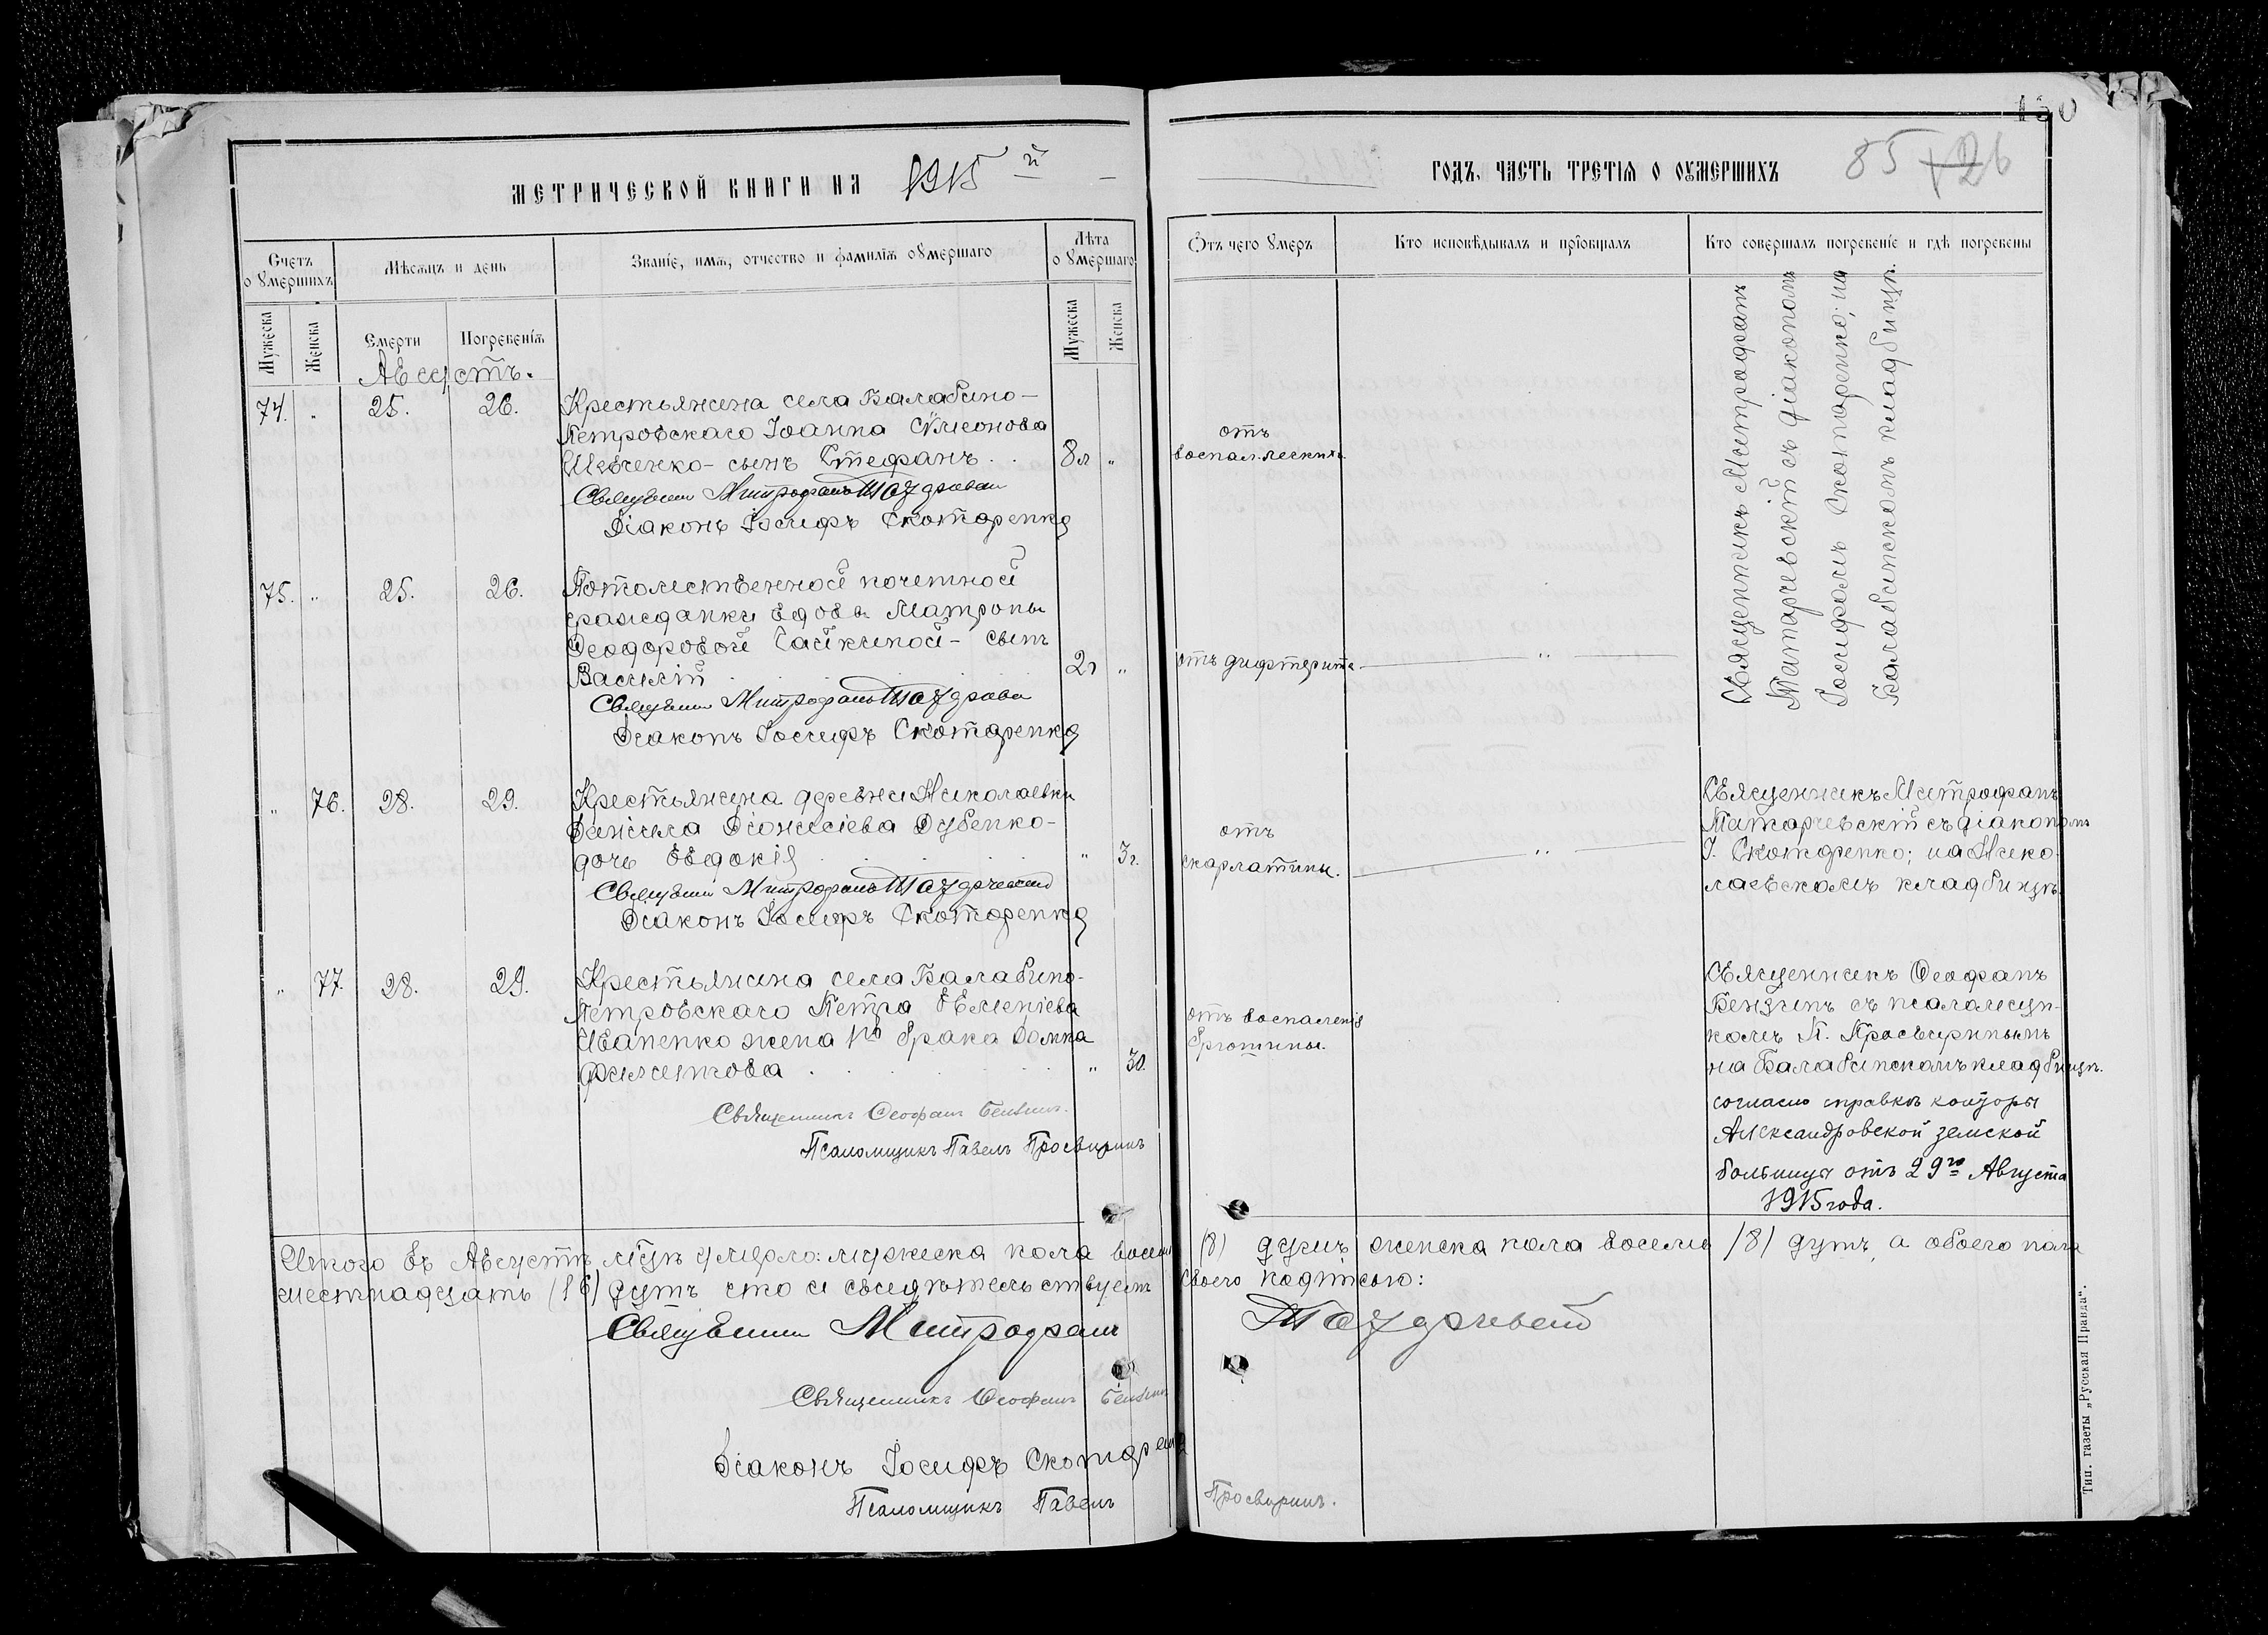 130
МЕТРИЧЕСКОЙ КНИГИ НА 1915 й
ГОДЪ, ЧАСТЬ ТРЕТІЯ О ОУМЕРШИХЪ 85
Счетъ оумершихъ
Мѣсяцъ и день
Званіе, имя, отчество и фамилія оумершаго
Лѣта оумершаго
Отъ чего умеръ
Кто исповѣдывалъ и пріобщалъ
Кто совершалъ погребеніе и гдѣ погребены
Мужеска
Женска
Смерти
Погребенія
Мужеска
Женска
Августъ.
74. „ 25. 26.
Крестьянина села Балабино-
Петровскаго Іоанна Сѵмеонова
Шевченко - сынъ Стефанъ . . 8л „
Священникъ Митрофанъ
Діаконъ Іосифъ Скотаренко
отъ
воспал. легкихъ
Священникъ Митрофанъ
Татарчевскій съ діакономъ
Іосифомъ Скотаренко; на
Балабинскомъ кладбищѣ.
75. „ 25. 26.
Потомственной почетной
гражданки вдовы Матроны
Ѳеодоровой Чайкиной - сынъ
Василій 2г „
Священникъ Митрофанъ
Діаконъ Іосифъ Скотаренко
отъ дифтерита „
„ 76. 28. 29.
Крестьянина деревни Николаевки
Даніила Діонисіева Дубенко-
дочь Евдокія . . . „ 3г.
Священникъ Митрофанъ
Діаконъ Іосифъ Скотаренко
отъ
скарлатины. „
Священникъ Митрофанъ
Татарчевскій съ діакономъ
І. Скотаренко; на Нико-
лаевскомъ кладбищѣ.
„ 77. 28. 29.
Крестьянина села Балабино-
Петровскаго Петра Евменіева
Иваненко жена 1го брака Домна
Филиппова . . . „ 30.
Священникъ Ѳеофанъ Бензинъ.
Псаломщикъ Павелъ Просвиринъ
отъ воспаленія
брюшины.
Священникъ Ѳеофанъ
Бензинъ съ псаломщи-
комъ П. Просвиринымъ
на Балабинскомъ кладбищѣ.
согласно справкѣ конторы
Александровской земской
больницы отъ 29го Августа
1915 года.
Итого въ Августѣ мѣсѣ умерло: мужеска пола восемь (8) душъ женска пола восемь (8) душъ, а обоего пола
шестнадцать (16) душъ что и свидѣтельствуемъ своею подписью:
Священникъ Митрофанъ Татарчевскій
Священникъ Ѳеофанъ Бензинъ
Діаконъ Іосифъ Скотаренко
Псаломщикъ Павелъ Просвиринъ.
Тип. газеты „Русская Правда".